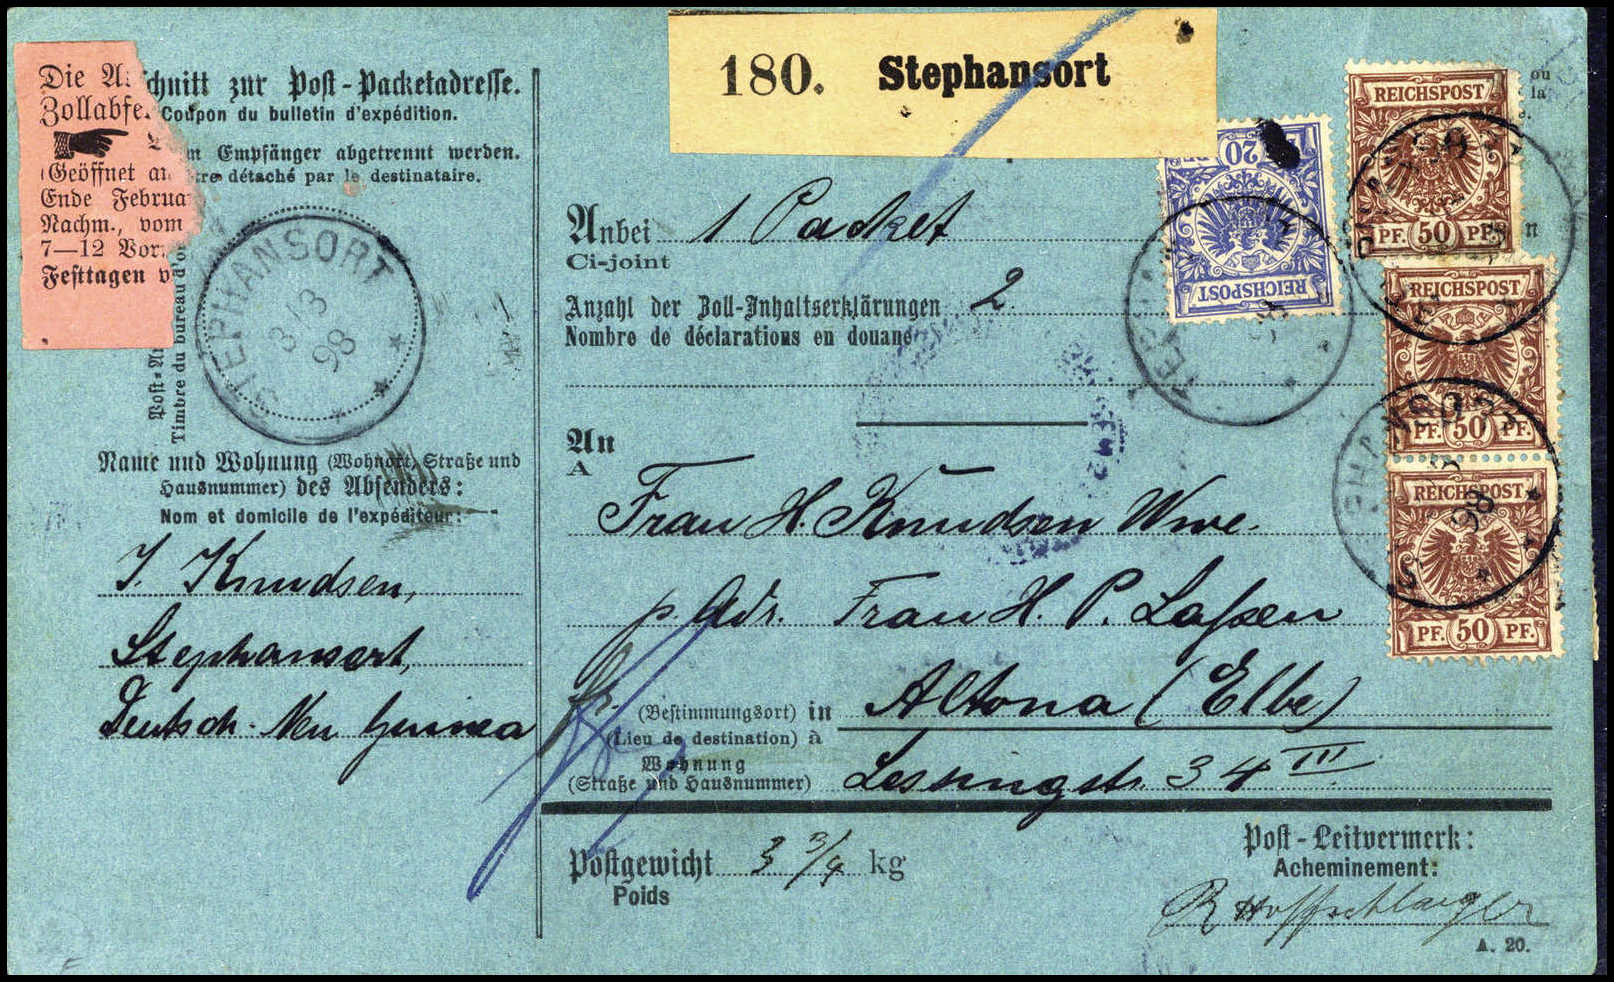 Die A
Zollabfe
(Geöffnet an
Ende Februa
Nachm., vom
7—12 Vor.
Festtagen v
schnitt zur Post-Packetadresse.
Coupon du bulletin d'expédition.
m Empfänger abgetrennt werden.
tre détaché par le destinataire.
Timbre du bureau d'or
STEPHANSORT
3/3
98
Name und Wohnung (Wohnort, Straße und
Hausnummer) des Absenders:
Nom et domicile de l'expéditeur:
J. Knudsen,
Stephansort,
Deutsch. Neu Guinea
180. Stephansort
Anbei 1 Packet
Ci-joint
Anzahl der Zoll-Inhaltserklärungen 2.
Nombre de déclarations en douane
An
A
Frau H. Knudsen Wwe.
p. Adr. Frau H. P. Laßen
(Bestimmungsort) in Altona (Elbe)
(Lieu de destination) à
Wohnung
(Straße und Hausnummer) Lessingstr. 34 III
Postgewicht 3 3/4 kg
Poids
Post-Leitvermerk:
Acheminement:
A. 20.
20 PF
REICHSPOST
REICHSPOST
PF. 50 PF.
REICHSPOST
PF. 50 PF.
REICHSPOST
PF. 50 PF.
98
98
ou
la
n